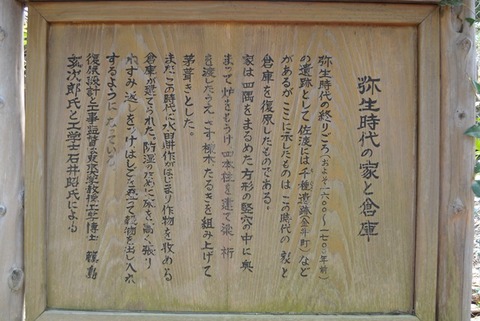 弥生時代の家と倉庫
弥生時代の終りごろ(およそ一六〇〇〜一七〇〇年前)
の遺跡として佐渡には千種遺跡(金井町)など
があるが ここに示したものは この時代の 家 と
倉庫を復原したものである。
家は四隅をまるめた方形の竪穴の中に奥
まって炉をもうけ 四本柱を建て 梁 桁
を渡したうえ さす 棟木 たるきを組み上げて
茅葺きとした。
またこの時代に水田耕作がはじまり作物を収める
倉庫が建てられた 防湿のために床を高く張り
ねずみ返しをつけはしごを
穀物を出し入れ
するようになっている
復原設計と工事
東京大学教授工学博士 藤島
亥次郎氏と工学士石井昭氏による